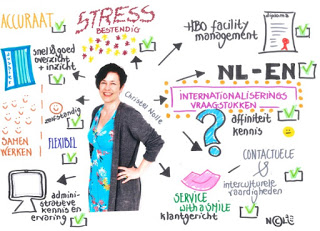 ACCURAAT
STRESS
BESTENDIG
HBO facility
management
diploma
snel & goed
overzicht
+ inzicht
NL-EN
INTERNATIONALISERINGS
VRAAGSTUKKEN
Christel Nolle
zelfstandig
SAMEN
WERKEN
FLEXIBEL
?
affiniteit
kennis
CONTACTUELE
&
interculturele
vaardigheden
admini-
stratieve
kennis en
ervaring
SERVICE
with a SMILE
klantgericht